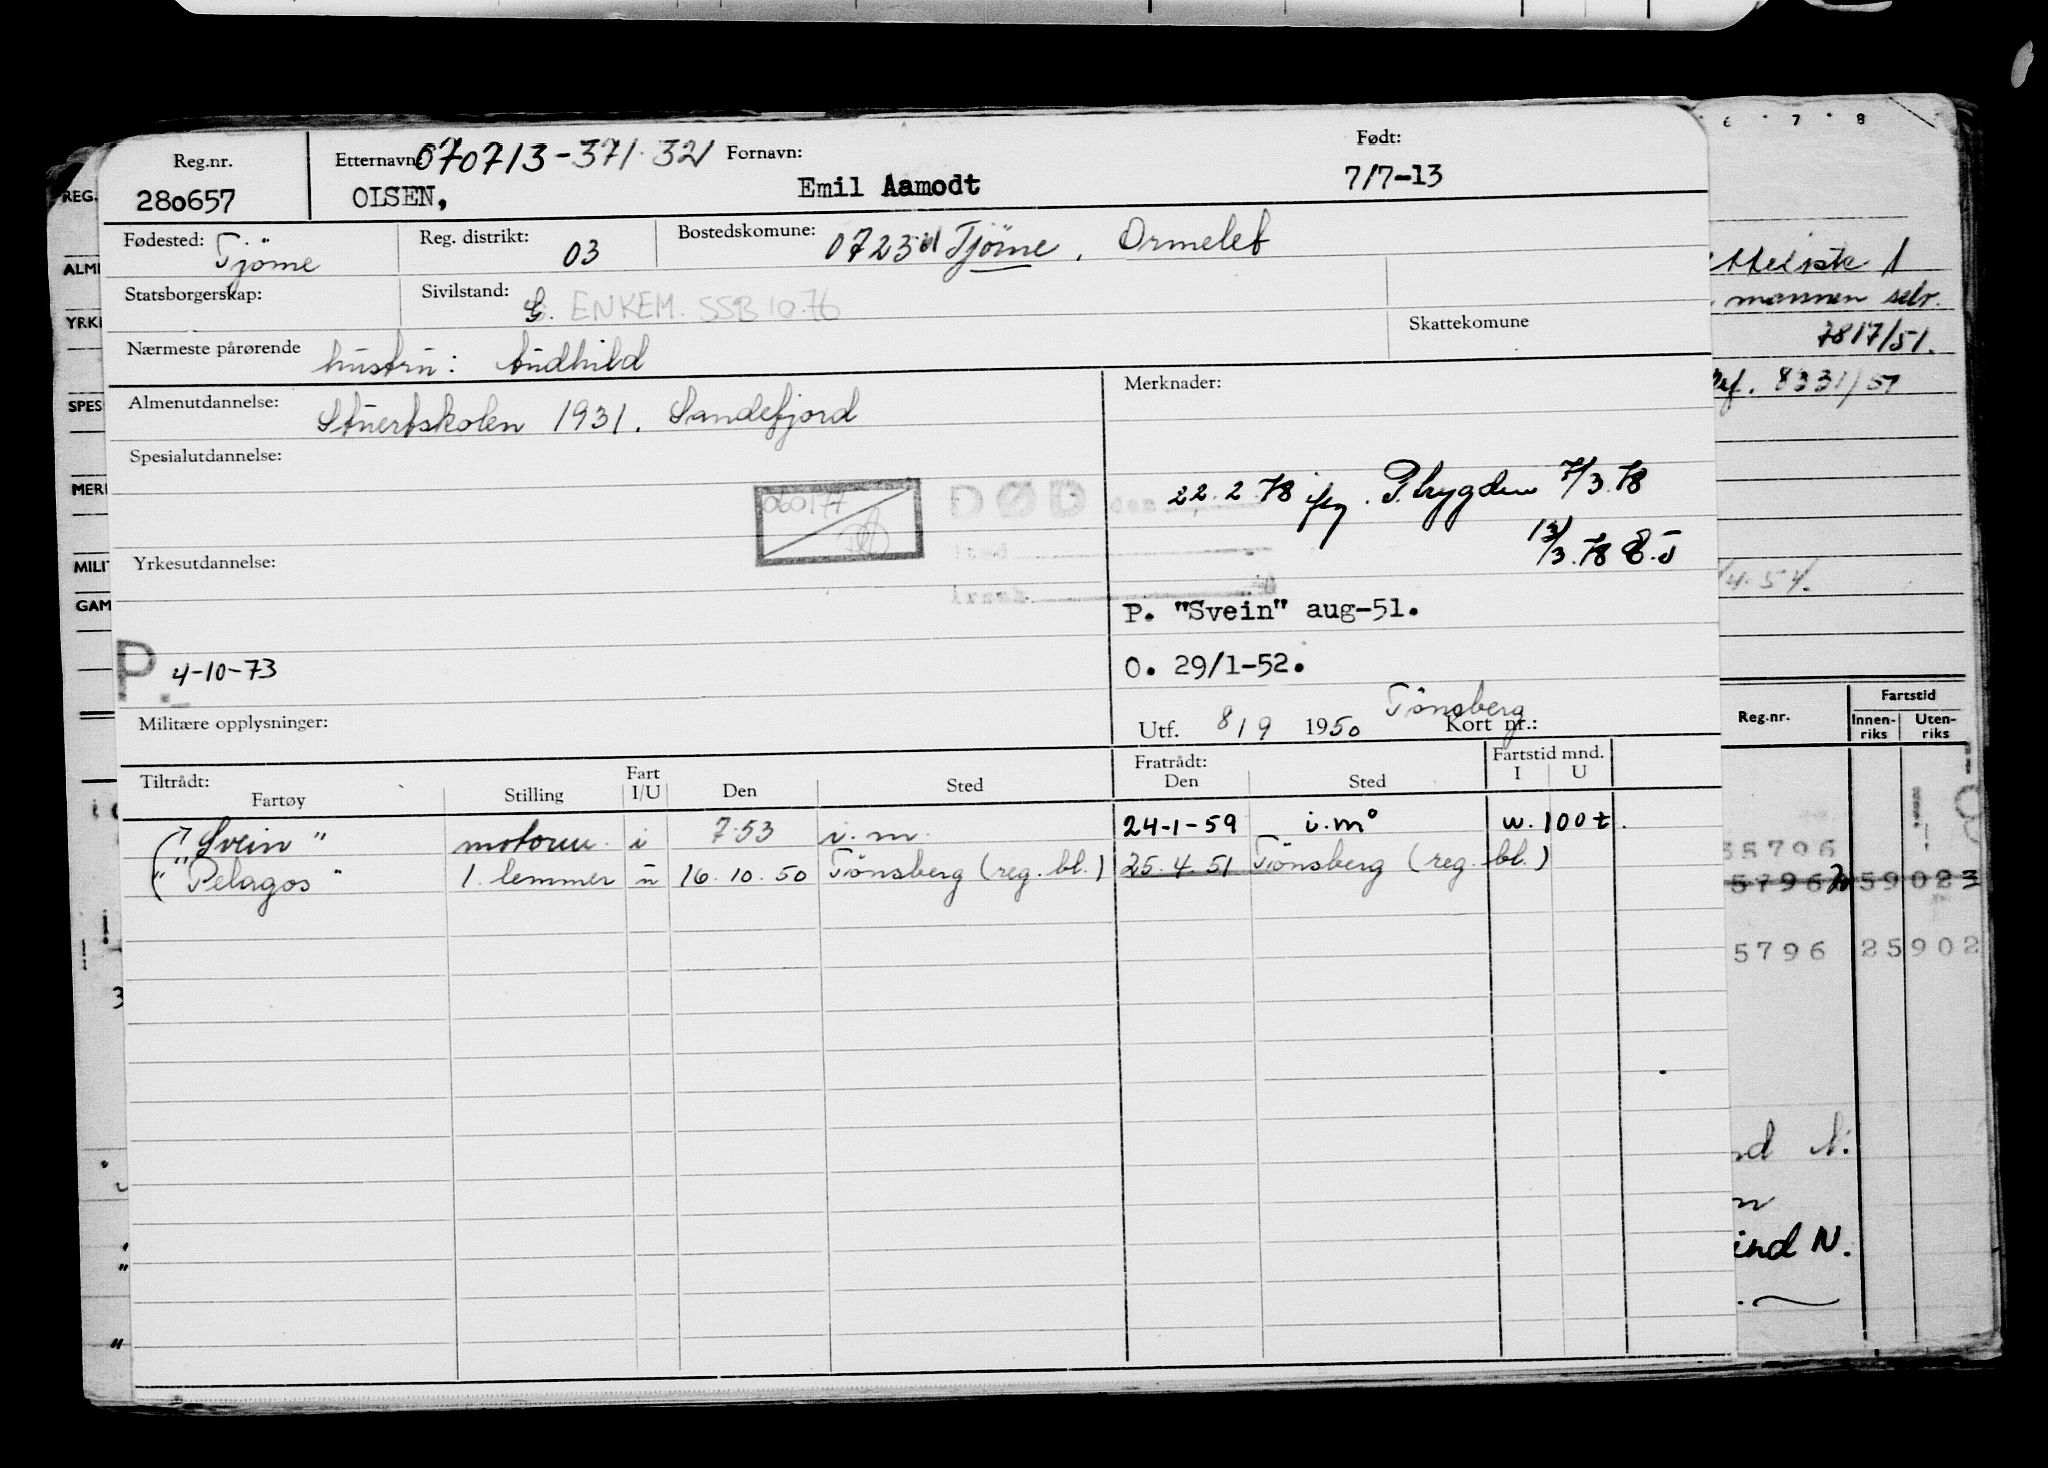 Reg.nr. Etternavn: 070713-371 321 Fornavn: Født:
280657 OLSEN, Emil Aamodt 7/7-13
Fødested: Tjöme Reg. distrikt: 03 Bostedskomune: 0723 Tjöme, Ormelet
Statsborgerskap: Sivilstand: G. ENKEM. SSB 10.76
Nærmeste pårørende hustru: Audhild Skattekomune
Almenutdannelse: Stuertskolen 1931. Sandefjord Merknader:
Spesialutdannelse:
22.2.78 P.trygden 7/3.78
060177 DØD den
13/3.78
sted
Yrkesutdannelse:
P. "Svein" aug-51.
P. 4-10-73
O. 29/1-52.
Militære opplysninger: Utf. 8/9 1950 Tönsberg Kort nr.:
Tiltrådt: Fratrådt: Fartstid mnd.
Fartøy Stilling Fart I/U Den Sted Den Sted I U
"Svein" i 7.53 i.m. 24-1-59 i.m. w.100t.
"Pelagos" 1. lemmer u 16.10.50 Tönsberg (reg.bl.) 25.4.51 Tönsberg (reg.bl.)
REG.
ALM
YRK
SPES
MER
MILI
GAM
6 7 8
mannen selv.
7817/51.
Ref. 8331/51
/4.54.
Reg.nr. Fartstid
Innen-riks Uten-riks
35796
57967 5902
5796 25902
ind N.